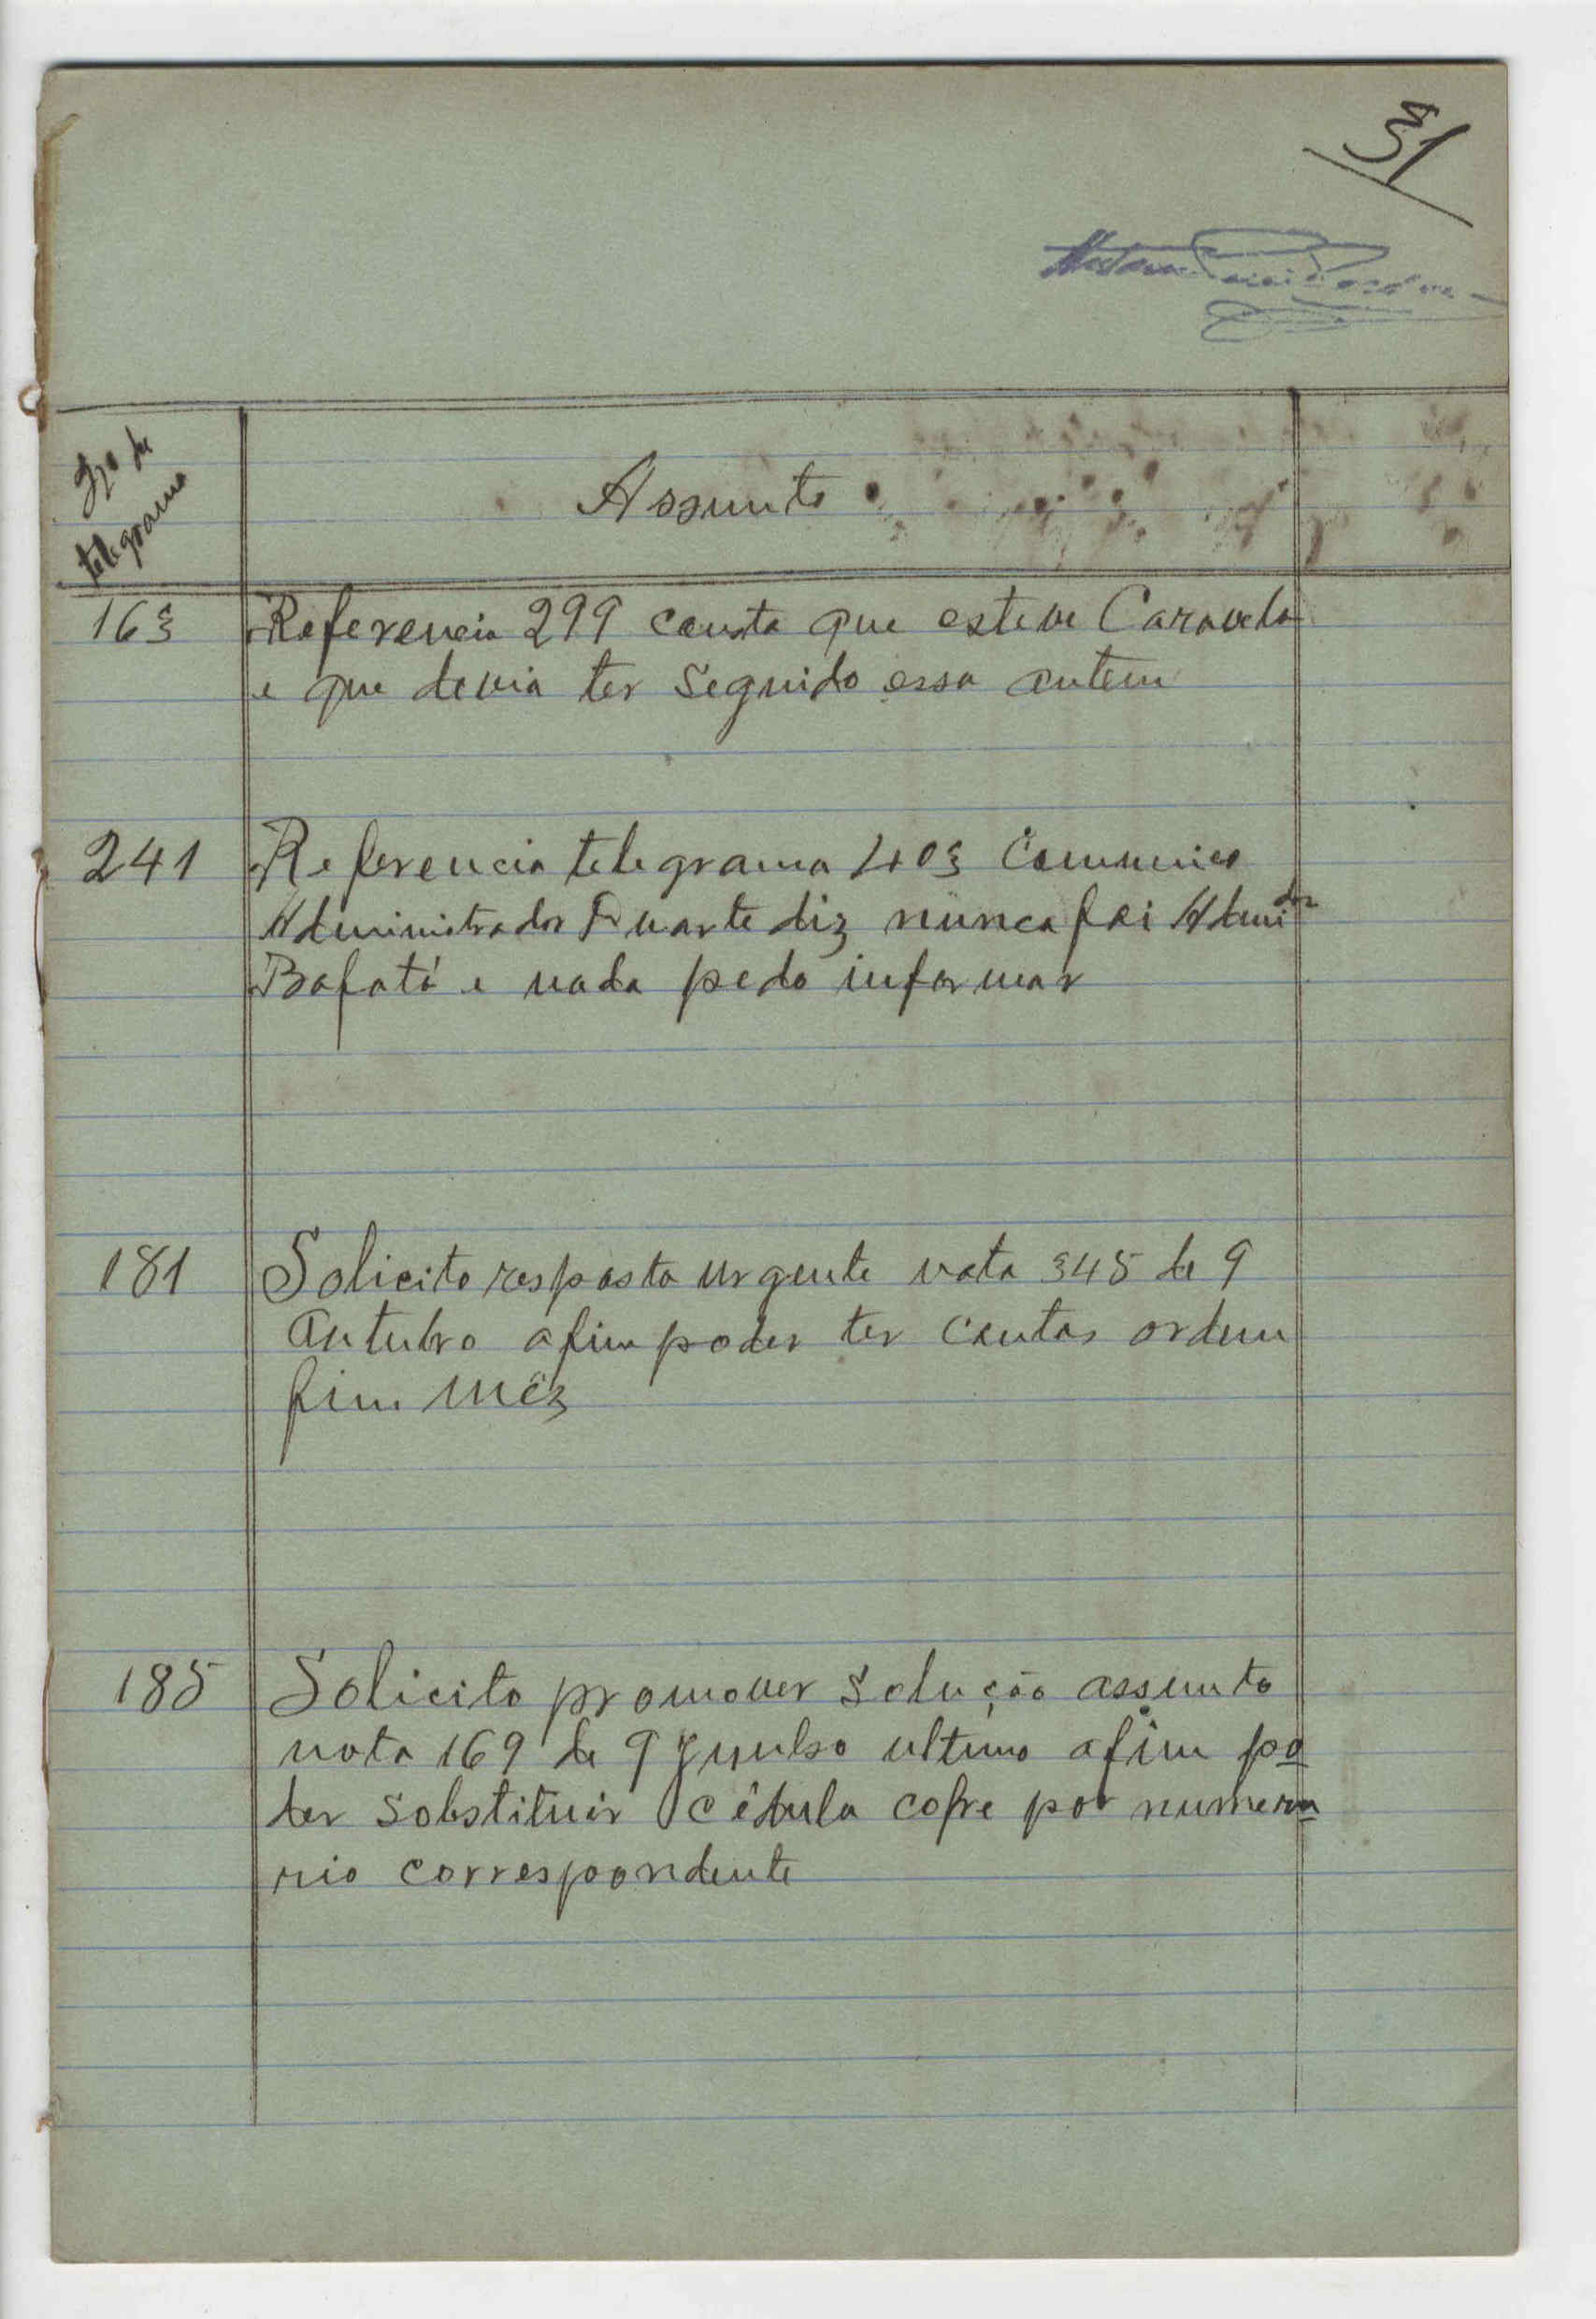 31
Nº de
telegrama
Assunto
163 Referencia 299 consta que esteve Caravela
e que devia ter seguido essa ontem
241 Referencia telegrama 403 Comunico
Administrador Duarte diz nunca foi Admdor
Bafatá e nada pode informar
181 Solicito resposta urgente nota 345 de 9
Outubro afim poder ter contas ordem
fim mêz
185 Solicito promover solução assunto
nota 169 de 9 Junho ultimo afim po
der sobstituir cédula cofre por numera
rio correspondente